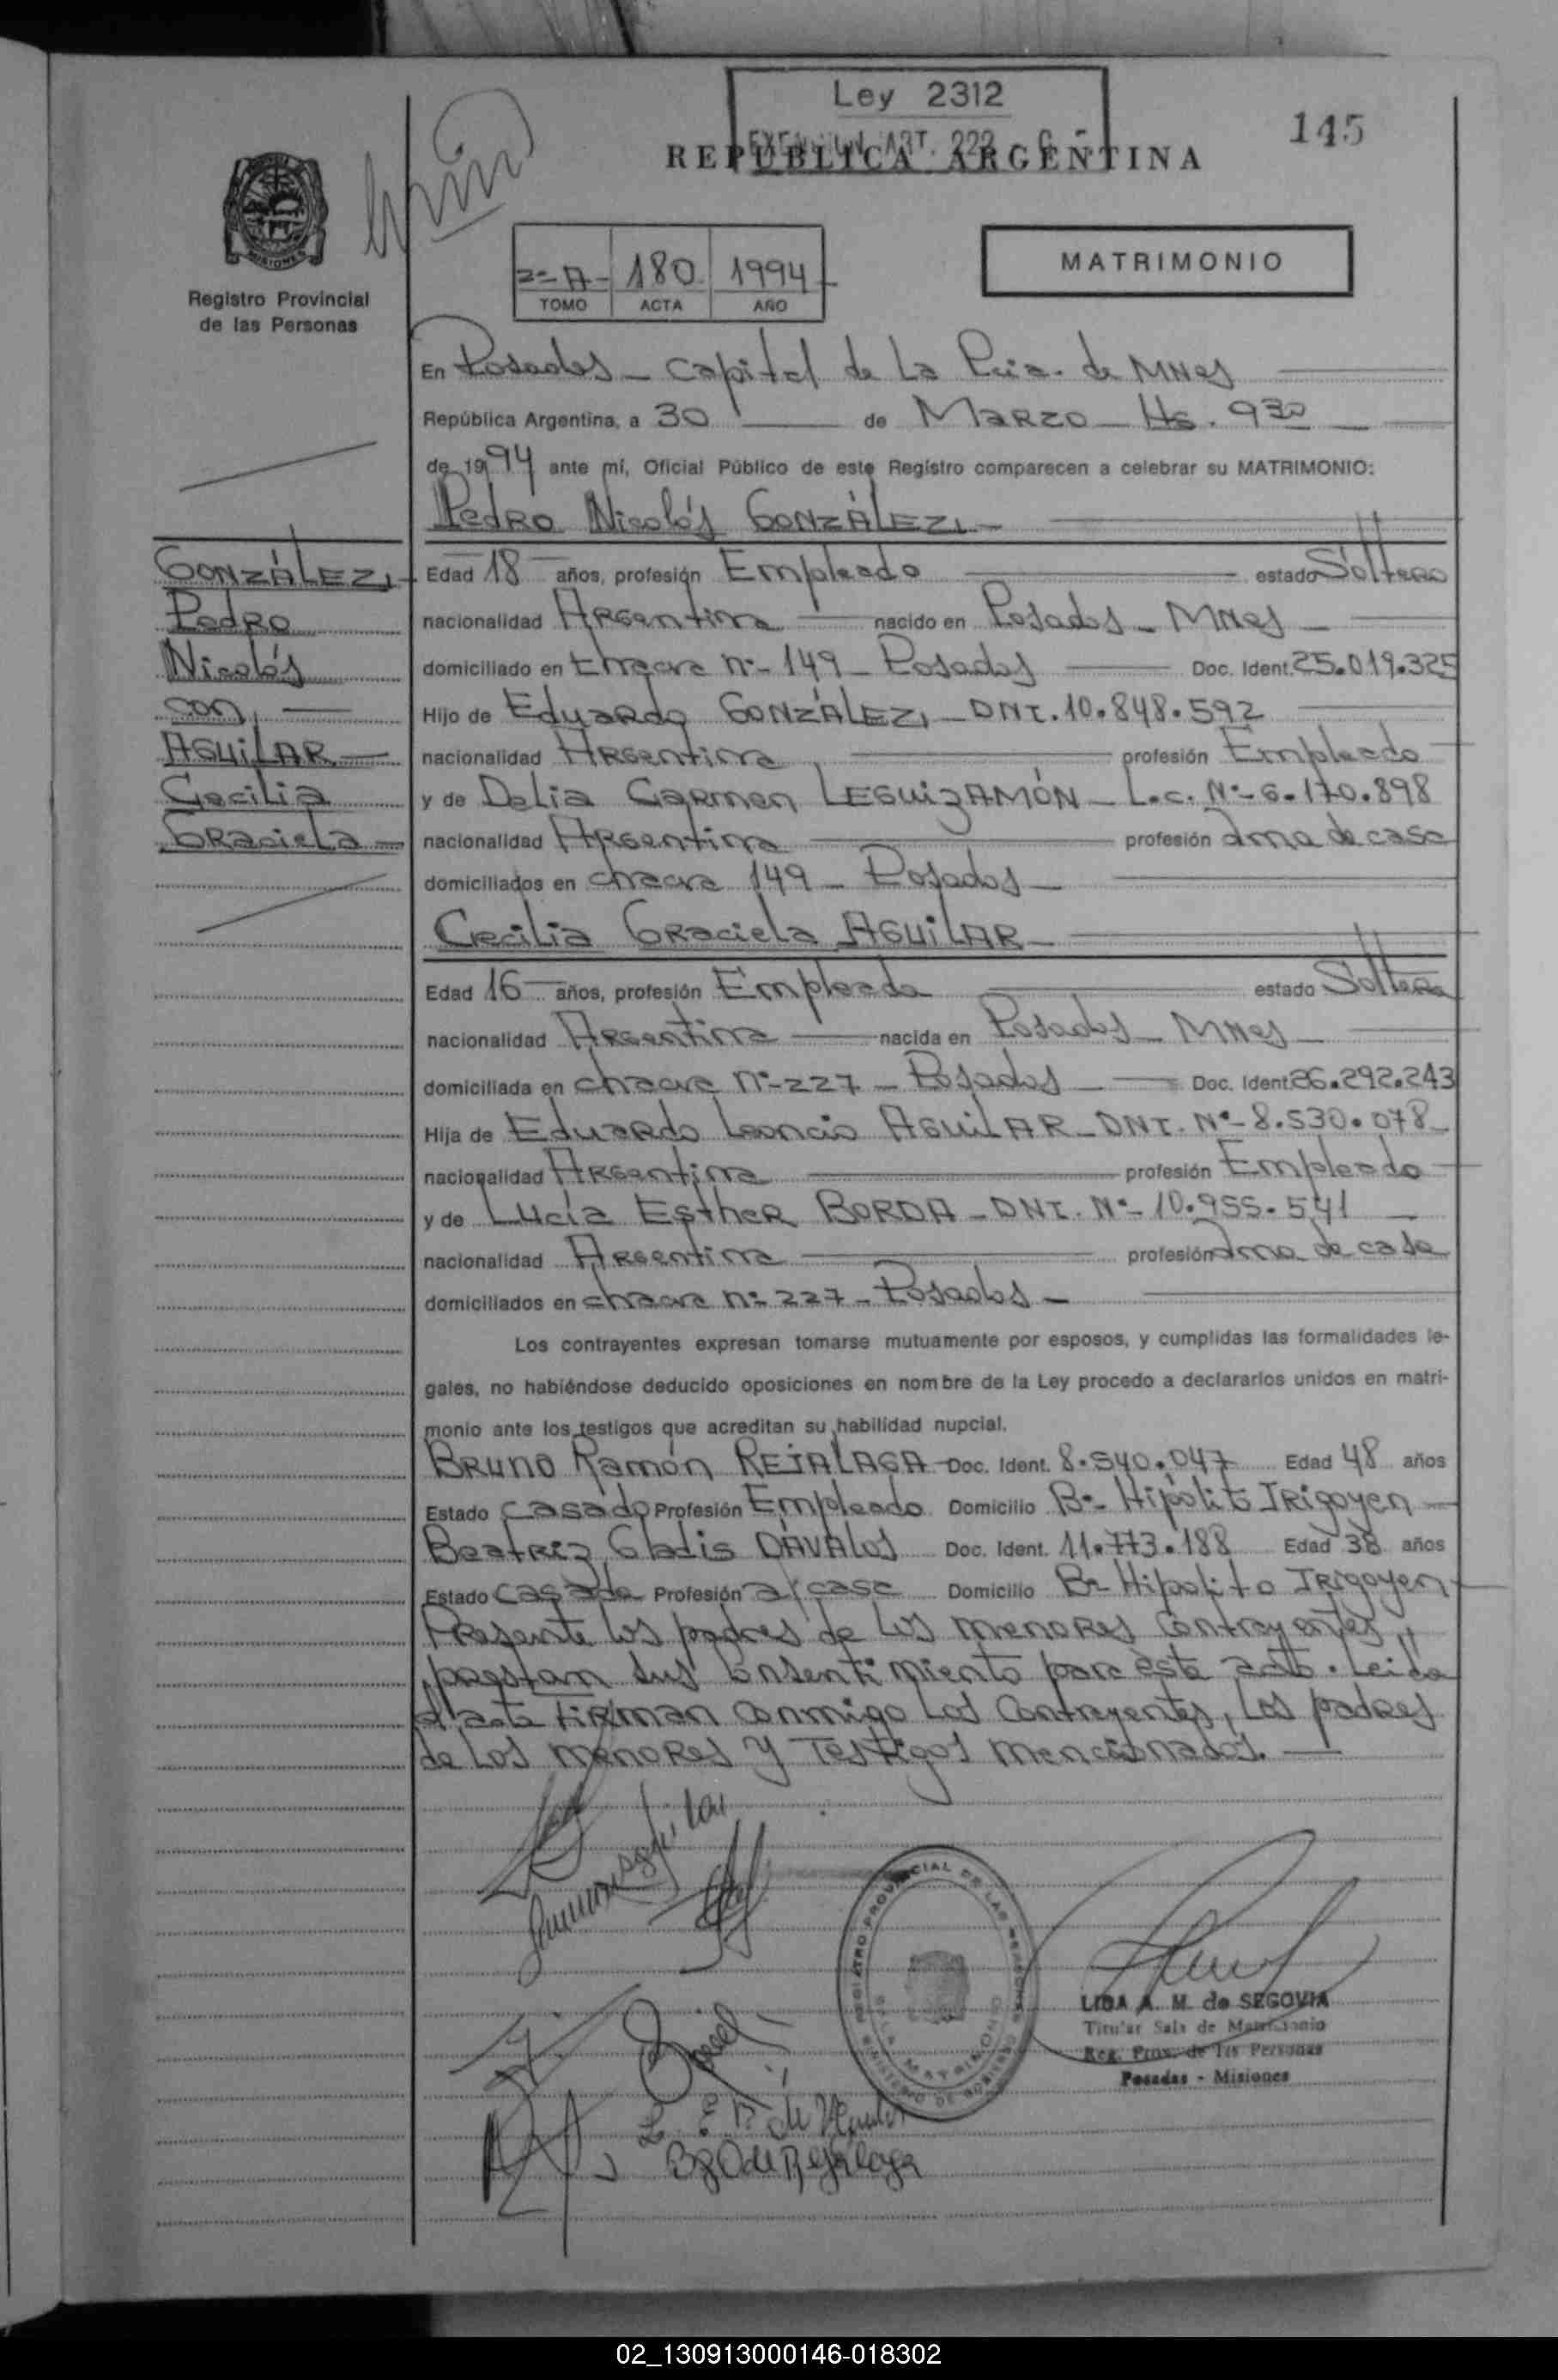 Ley 2312
ART. 222
REPUBLICA ARGENTINA
145
MISIONES
Registro Provincial
de las Personas
2º A- 180 1994
TOMO ACTA AÑO
MATRIMONIO
En Posadas - Capital de La Pcia. de MNes
República Argentina, a 30 de MARZO - Hs. 930
de 1994 ante mí, Oficial Público de este Registro comparecen a celebrar su MATRIMONIO:
PedRo Nicolás GONZÁLEZ
GONZÁLEZ
PedRo
Nicolás
con
AGUILAR
Cecilia
GRaciela
Edad 18 años, profesión Empleado estado Soltero
nacionalidad ARgentina nacido en Posadas - MNes
domiciliado en chacra nº 149 - Posadas Doc. Ident. 25.019.325
Hijo de EduaRdo GONZÁLEZ - DNI. 10.848.592
nacionalidad ARgentina profesión Empleado
y de Delia CaRmen LEGUIZAMÓN - L.C. Nº 6.170.898
nacionalidad ARgentina profesión ama de casa
domiciliados en chacra 149 - Posadas
Cecilia GRaciela AGUILAR
Edad 16 años, profesión Empleada estado Soltera
nacionalidad ARgentina nacida en Posadas - MNes
domiciliada en chacra nº 227 - Posadas Doc. Ident. 26.292.243
Hija de EduaRdo Leoncio AGUILAR - DNI. Nº 8.530.078
nacionalidad ARgentina profesión Empleado
y de Lucía EstheR BORDA - DNI. Nº 10.955.541
nacionalidad ARgentina profesión ama de casa
domiciliados en chacra nº 227 - Posadas
Los contrayentes expresan tomarse mutuamente por esposos, y cumplidas las formalidades le-
gales, no habiéndose deducido oposiciones en nombre de la Ley procedo a declararlos unidos en matri-
monio ante los testigos que acreditan su habilidad nupcial.
BRuno Ramón REJALAGA Doc. Ident. 8.540.047 Edad 48 años
Estado casado Profesión Empleado Domicilio Bº Hipólito IRigoyen
BeatRiz Gladis DÁVALOS Doc. Ident. 11.773.188 Edad 38 años
Estado casada Profesión a/casa Domicilio Bº Hipólito IRigoyen
PResente los padres de los menoRes contrayentes,
prestan sus consentimiento para este acto. Leida
el acta FiRman conmigo los contrayentes, los padres
de los menoRes y Testigos mencionados.
REGISTRO PROVINCIAL DE LAS PERSONAS
MINISTERIO DE GOBIERNO
SALA MATRIMONIO
LIDA A. M. de SEGOVIA
Titular Sala de Matrimonio
Reg. Prov. de las Personas
Posadas - Misiones
BgDde Rejalaga
02_130913000146-018302